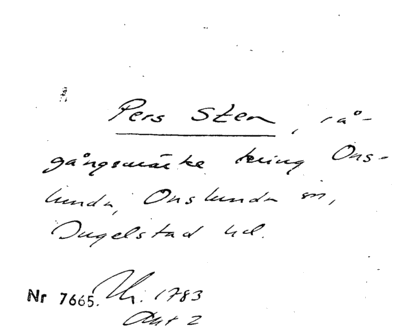 Pers Sten, rå-
gångsmärke kring Ons-
lunda, Onslunda sn,
Ingelstad hd.
Nr 7665. Uh. 1783
Akt 2